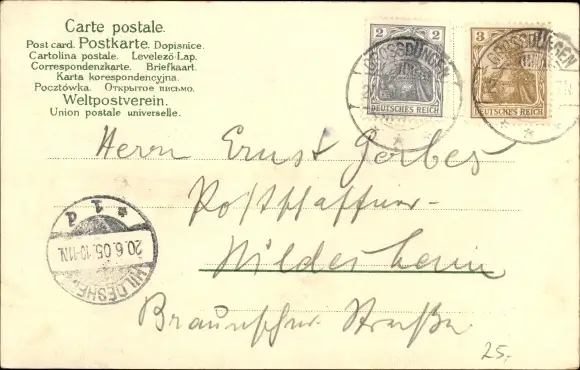 Carte postale.
Post card. Postkarte. Dopisnice.
Cartolina postale. Levelező-Lap.
Correspondenzkarte. Briefkaart.
Karta korespondencyjna.
Pocztówka. Открытое письмо.
Weltpostverein.
Union postale universelle.
2 2
DEUTSCHES REICH
3 3
DEUTSCHES REICH
GROSSDÜNGEN
GROSSDÜNGEN
Herrn Ernst Gerbes
Postschaffner
Hildesheim
Braunscher Straße
HILDESHEIM
20.6.05.10-11N.
* 1 d
25,-